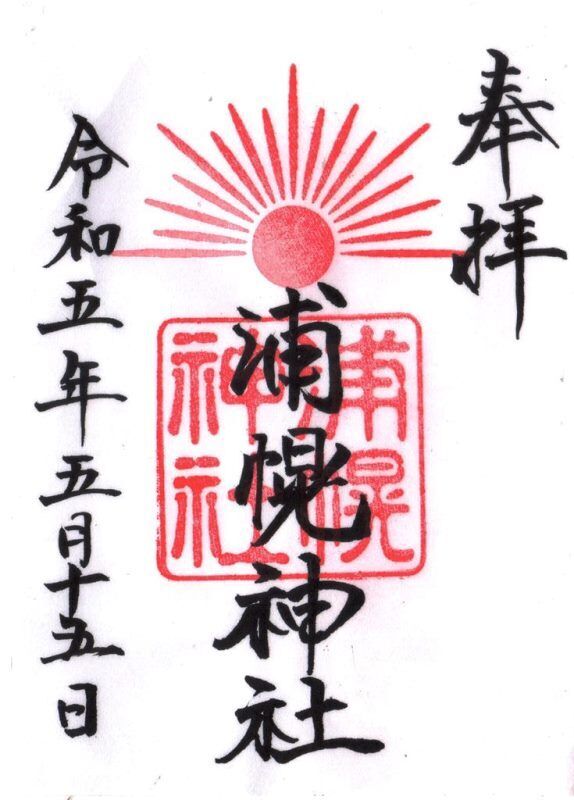 奉拝
浦幌神社
浦幌
神社
令和五年五月十五日